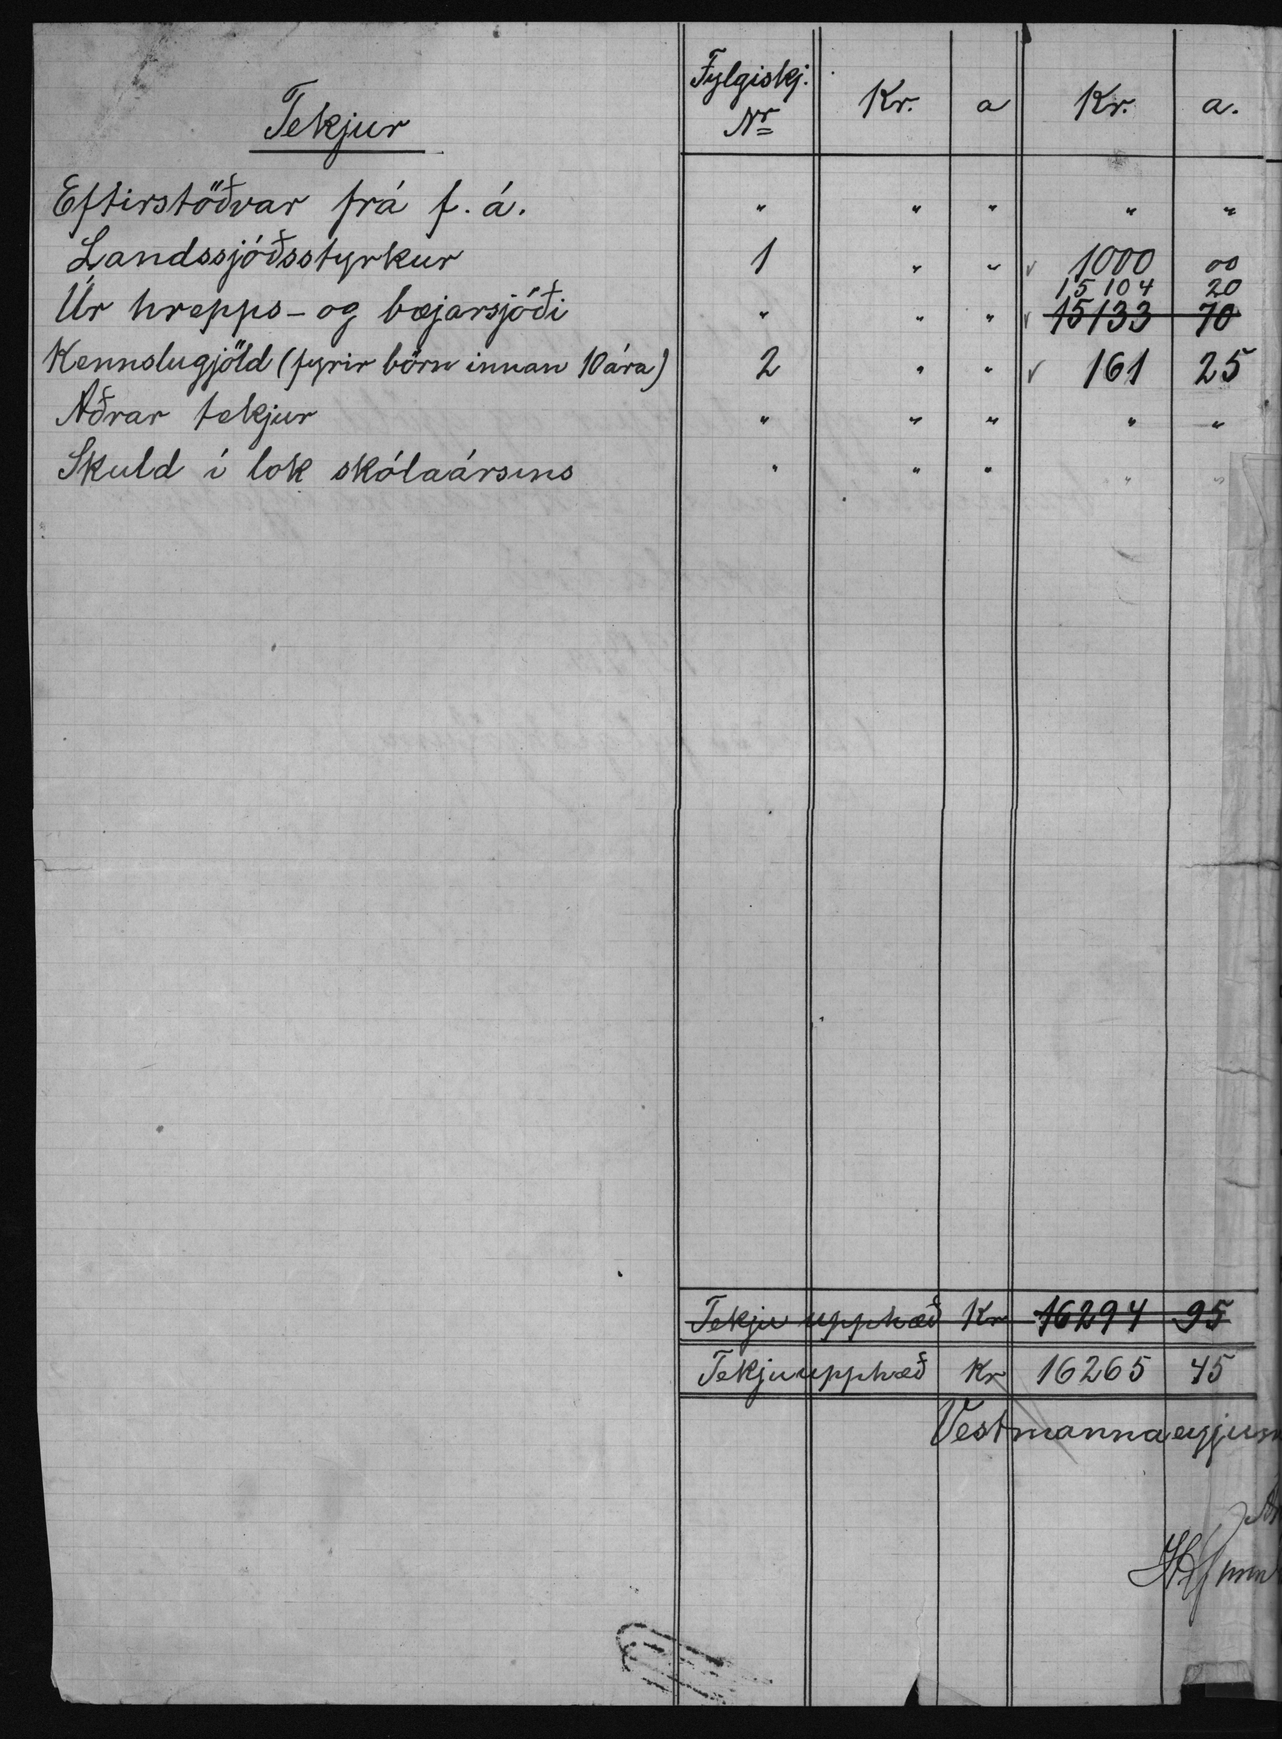 Tekjur Fylgiskj. Nr Kr. a Kr. a.
Eftirstöðvar frá f. á. " " " " "
Landssjóðsstyrkur 1 " " √ 1000 00
15104 20
Úr hrepps- og bæjarsjóði " " " √ 15133 70
Kennslugjöld (fyrir börn innan 10 ára) 2 " " √ 161 25
Aðrar tekjur " " " " "
Skuld í lok skólaársins " " " " "
Tekjuupphæð Kr 16294 95
Tekjuupphæð Kr 16265 45
Vestmannaeyjum